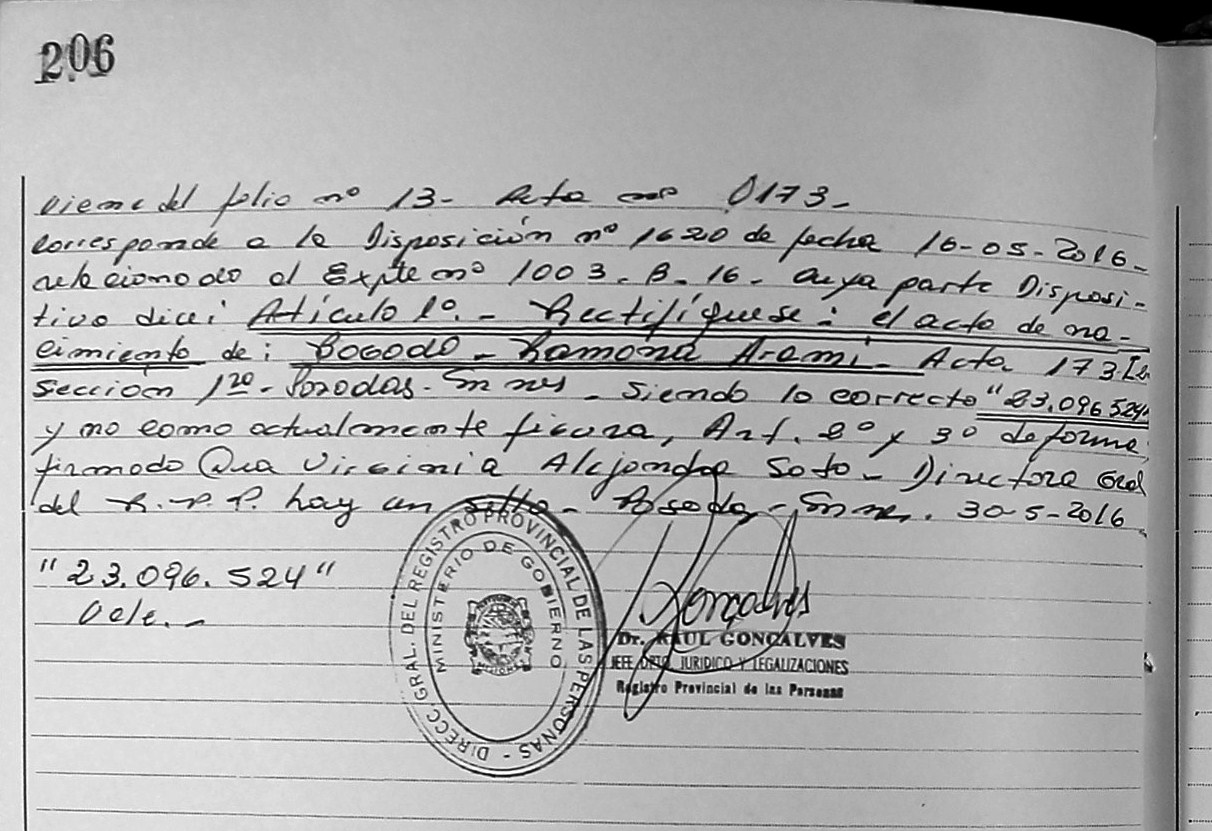 206
viene del folio nº 13- Acta nº 0173-
corresponde a la Disposición nº 1620 de fecha 16-05-2016-
relacionado al Expte nº 1003-B-16- cuya parte Disposi-
tiva dice: Artículo 1º.- Rectifíquese: el acta de na-
cimiento de: Bogado - Ramona Aramí- Acta 173
Sección 1ra- Posadas- Mnes - siendo lo correcto "23.096.524"
y no como actualmente figura, Art. 2º y 3º de forma,
firmado Dra Virginia Alejandra Soto - Directora Gral
del R.P.P. hay un sello- Posadas- Mnes. 30-5-2016
"23.096.524"
Vale.-
DIRECC. GRAL. DEL REGISTRO PROVINCIAL DE LAS PERSONAS -
MINISTERIO DE GOBIERNO
Gonçalves
Dr. RAUL GONCALVES
JEFE DPTO JURIDICO Y LEGALIZACIONES
Registro Provincial de las Personas